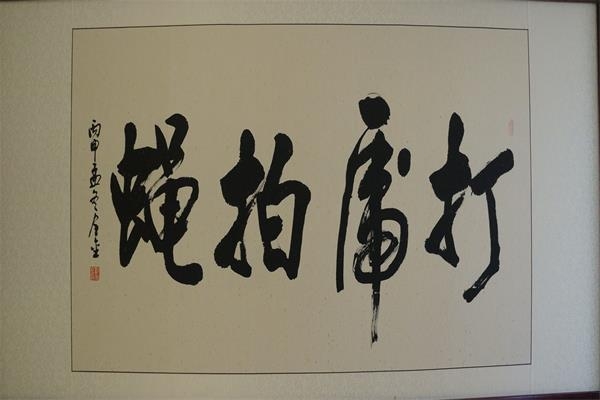 打虎拍蝇
丙申孟冬